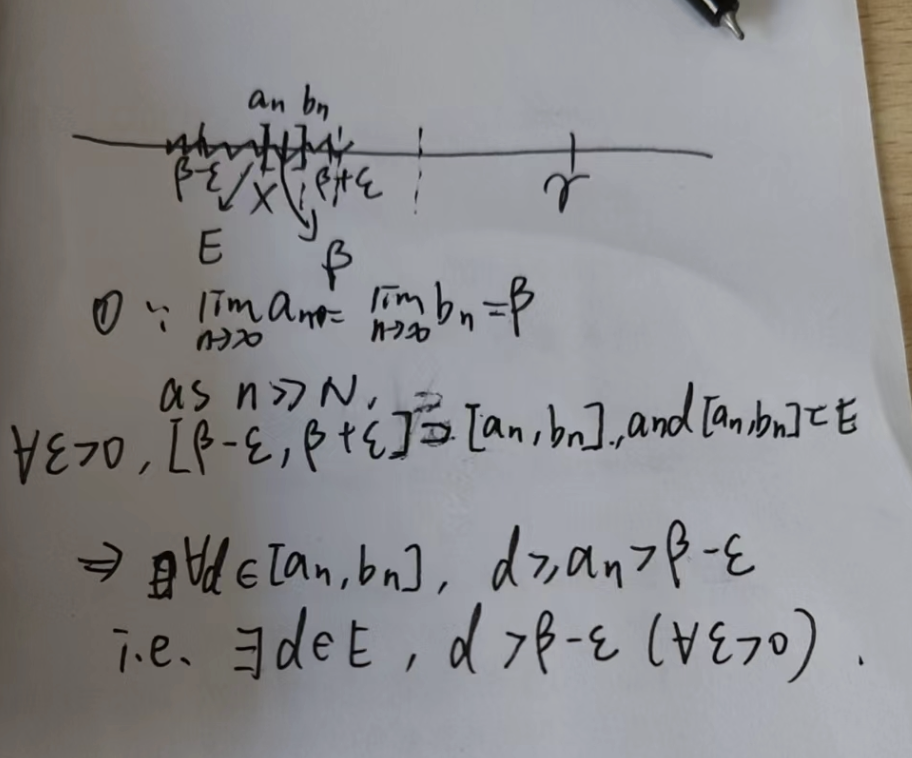 an bn
β-ε X β+ε γ
E β
① ∵ lim n→∞ an = lim n→∞ bn = β
as n >> N,
∀ε>0, [β-ε, β+ε] ⊃ [an, bn], and [an, bn] ⊂ E
⇒ ∀d ∈ [an, bn], d ≥ an > β-ε
i.e. ∃d∈E, d > β-ε (∀ε>0).